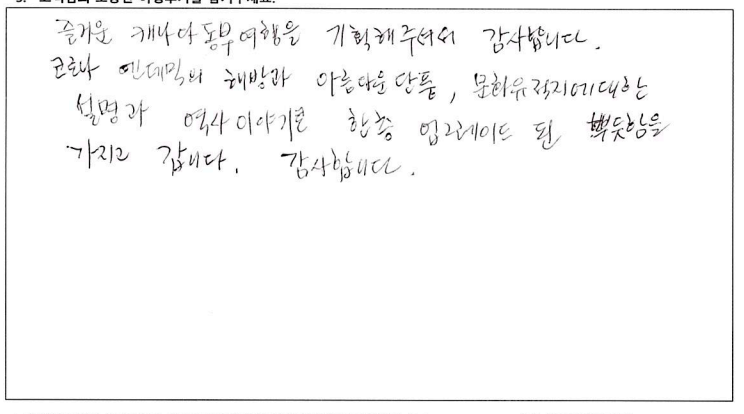 즐거운 캐나다동부여행을 기획해주셔서 감사합니다.
코로나 엔데믹의 해방과 아름다운단풍, 문화유적지에대한
설명과 역사이야기로 한층 업그레이드 된 뿌듯함을
가지고 갑니다. 감사합니다.